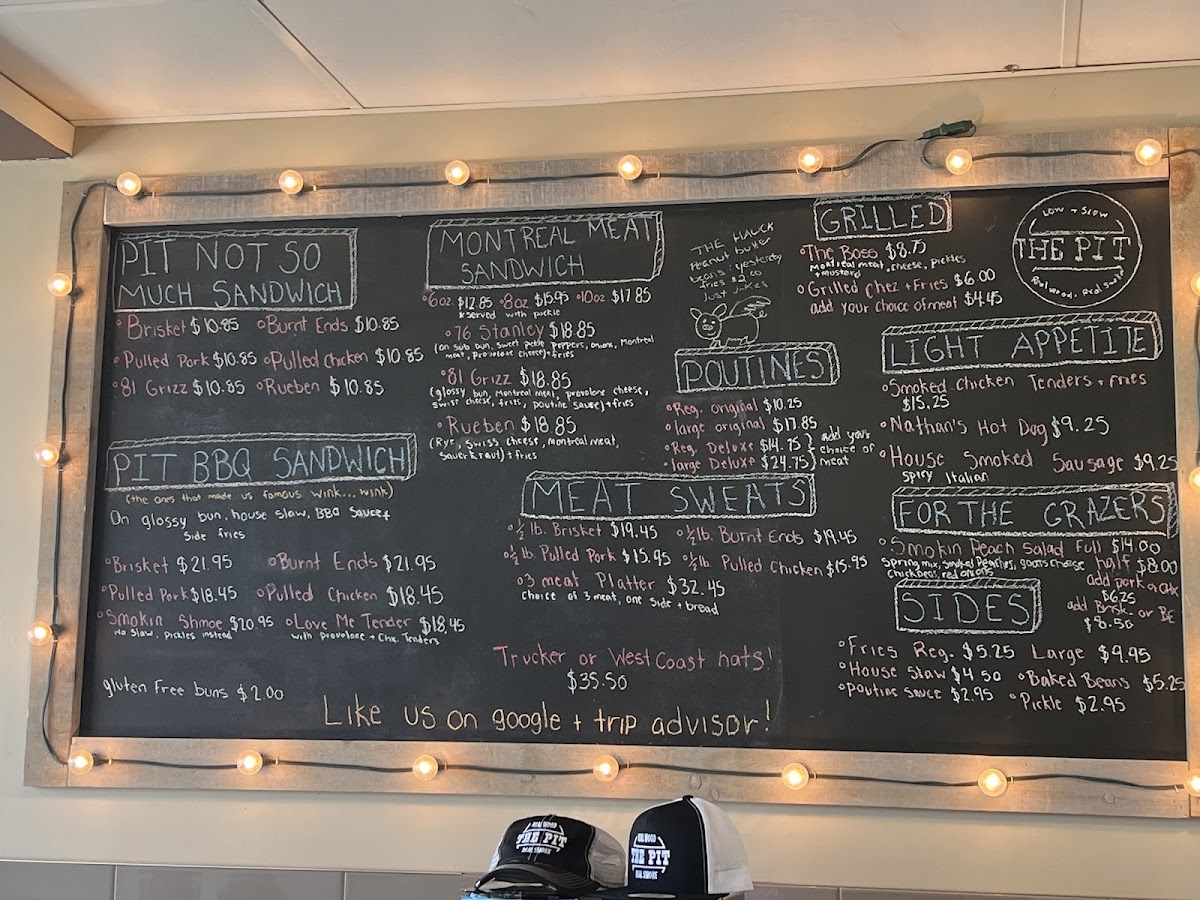 PIT NOT SO
MUCH SANDWICH
Brisket $10.85 Burnt Ends $10.85
Pulled Pork $10.85 Pulled Chicken $10.85
81 Grizz $10.85 Rueben $10.85
PIT BBQ SANDWICH
(the ones that made us famous wink... wink)
On glossy bun, house slaw, BBQ Sauce +
side fries
Brisket $21.95 Burnt Ends $21.95
Pulled Pork $18.45 Pulled Chicken $18.45
Smokin Shmoe $20.95 Love Me Tender $18.45
no slaw, pickles instead with provolone + Chx. Tenders
gluten Free buns $2.00
MONTREAL MEAT
SANDWICH
6oz $12.85 8oz $15.95 10oz $17.85
served with pickle
76 Stanley $18.85
(on sub bun, sweet pickle peppers, onions, Montreal
meat, provolone cheese) + fries
81 Grizz $18.85
(glossy bun, Montreal meat, provolone cheese,
swiss cheese, fries, poutine sauce) + fries
Rueben $18.85
(Rye, Swiss cheese, montreal meat,
Sauerkraut) + fries
THE HAUCK
Peanut butter
beans: yesterday
fries $2.00
Just Jokes
POUTINES
Reg. original $10.25
large original $17.85
Reg Deluxe $14.75
large Deluxe $24.75
add your
choice of
meat
MEAT SWEATS
½ lb. Brisket $19.45 ½ lb. Burnt Ends $19.45
½ lb. Pulled Pork $15.95 ½ lb. Pulled Chicken $15.95
3 meat Platter $32.45
choice of 3 meat, one side + bread
Trucker or West Coast hats!
$35.50
Like us on google + trip advisor!
GRILLED
The Boss $8.75
Montreal meat, cheese, pickles
+ mustard
Grilled Chez + Fries $6.00
add your choice of meat $4.45
LOW + SLOW
THE PIT
Real wood, Real Smoke
LIGHT APPETITE
Smoked Chicken Tenders + Fries
$15.25
Nathan's Hot Dog $9.25
House Smoked Sausage $9.25
Spicy Italian
FOR THE GRAZERS
Smokin Peach Salad Full $14.00
Spring mix, smoked peaches, goats cheese half $8.00
Chickpeas, red onions
add pork or chx
$6.25
add Brisk. or BE
$8.50
SIDES
Fries Reg. $5.25 Large $9.95
House Slaw $4.50 Baked Beans $5.25
Poutine Sauce $2.95 Pickle $2.95
REAL WOOD
THE PIT
REAL SMOKE
REAL WOOD
THE PIT
REAL SMOKE